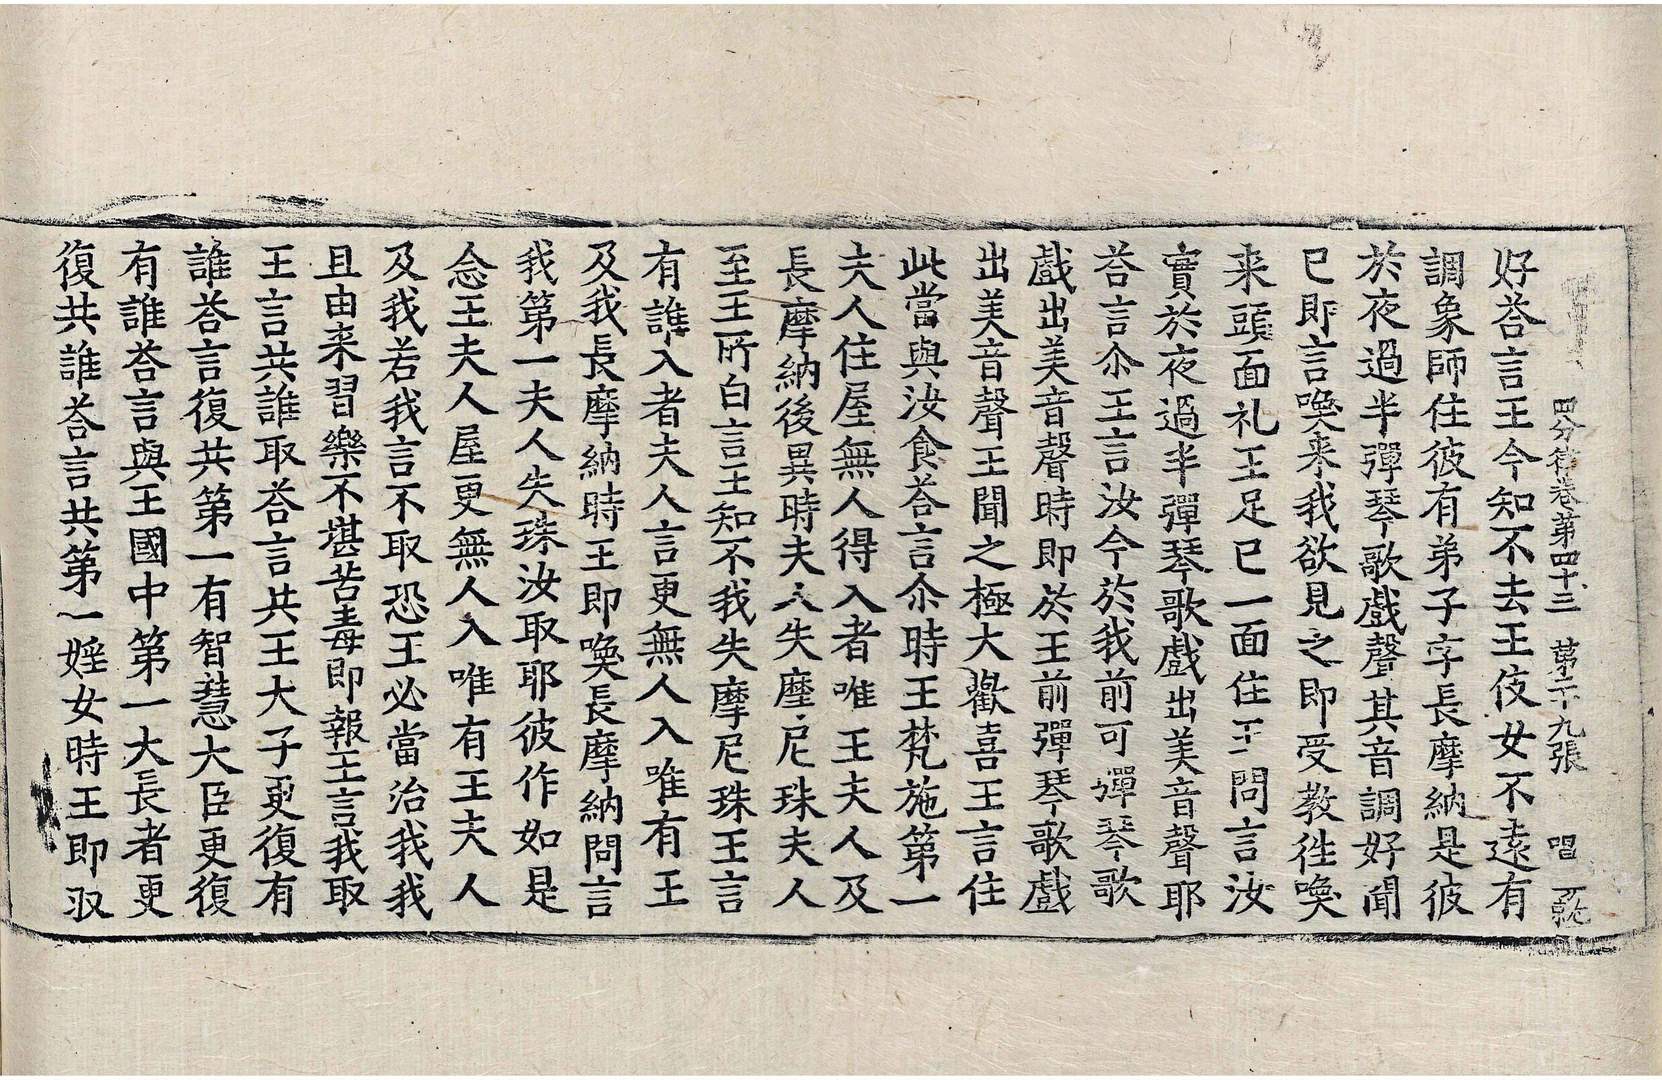 四分律卷第四十三　第二十九張　唱　就
好荅言王今知不去王伎女不遠有
調象師住彼有弟子字長摩納是彼
於夜過半彈琴歌戲聲其音調好聞
已即言喚来我欲見之即受教徃喚
来頭面礼王足已一面住王問言汝
實於夜過半彈琴歌戲出美音聲耶
荅言尒王言汝今於我前可彈琴歌
戲出美音聲時即於王前彈琴歌戲
出美音聲王聞之極大歡喜王言住
此當與汝食荅言尒時王梵施第一
夫人住屋無人得入者唯王夫人及
長摩納後異時夫人失摩尼珠夫人
至王所白言王知不我失摩尼珠王言
有誰入者夫人言更無人入唯有王
及我長摩納時王即喚長摩納問言
我第一夫人失珠汝取耶彼作如是
念王夫人屋更無人入唯有王夫人
及我若我言不取恐王必當治我我
且由来習樂不堪苦毒即報王言我取
王言共誰取荅言共王大子更復有
誰荅言復共第一有智慧大臣更復
有誰荅言與王國中第一大長者更
復共誰荅言共第一婬女時王即収